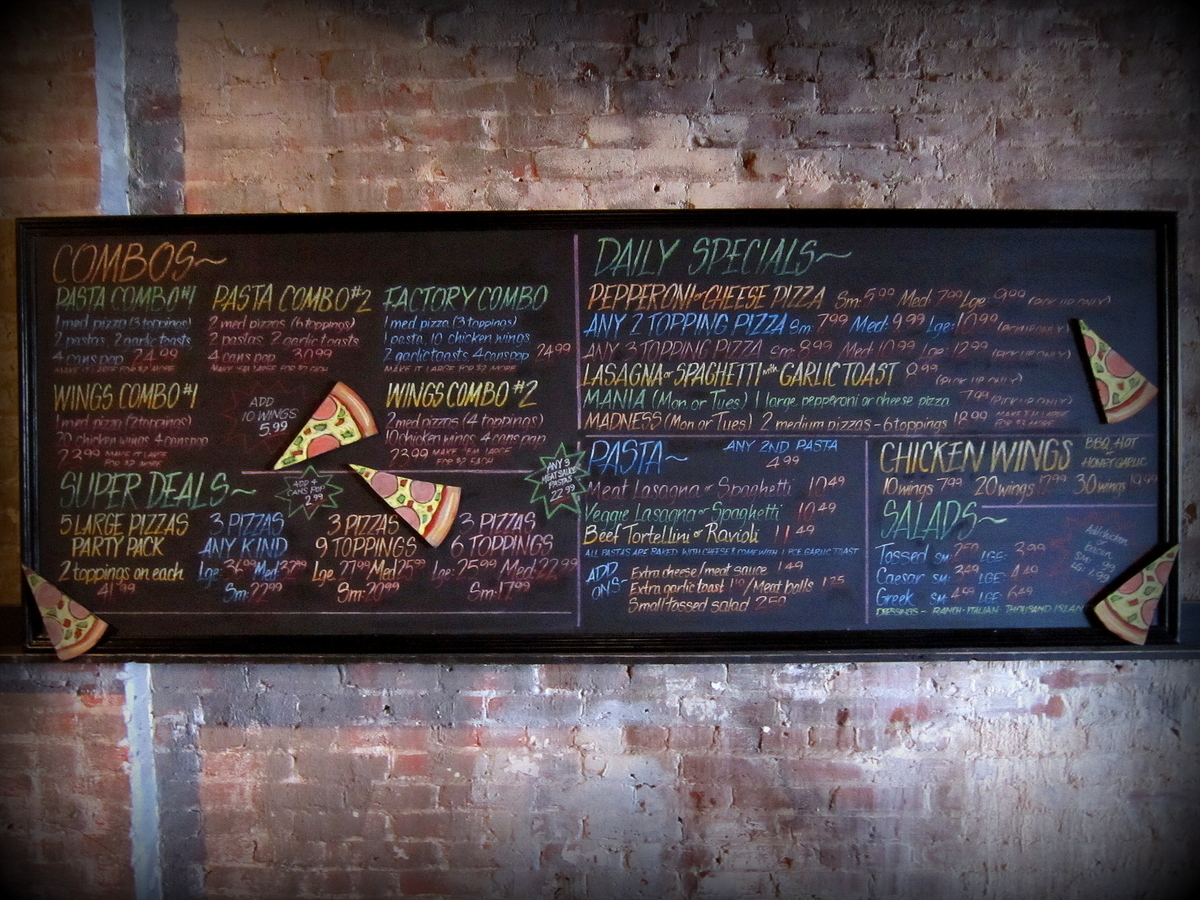 COMBOS~
PASTA COMBO #1
1 med pizza (3 toppings)
2 pastas, 2 garlic toasts
4 cans pop 24.99
MAKE IT LARGE FOR $2 MORE
PASTA COMBO #2
2 med pizzas (6 toppings)
2 pastas, 2 garlic toasts
4 cans pop 30.99
MAKE 'EM LARGE FOR $2 EACH
FACTORY COMBO
1 med pizza (3 toppings)
1 pasta, 10 chicken wings
2 garlic toasts, 4 cans pop 24.99
MAKE IT LARGE FOR $2 MORE
WINGS COMBO #1
1 med pizza (2 toppings)
20 chicken wings 4 cans pop
23.99 MAKE IT LARGE
FOR $2 MORE
ADD
10 WINGS
5.99
WINGS COMBO #2
2 med pizzas (4 toppings)
10 chicken wings 4 cans pop
23.99 MAKE 'EM LARGE
FOR $2 EACH
SUPER DEALS~
ADD 4
CANS POP
2.99
ANY 3
MEAT SAUCE
PASTAS
22.99
5 LARGE PIZZAS
PARTY PACK
2 toppings on each
41.99
3 PIZZAS
ANY KIND
Lge: Med:
Sm: 22.99
3 PIZZAS
9 TOPPINGS
Lge: 27.99 Med: 25.99
Sm: 20.99
3 PIZZAS
6 TOPPINGS
Lge: 25.99 Med: 22.99
Sm: 17.99
DAILY SPECIALS~
PEPPERONI or CHEESE PIZZA Sm: 5.99 Med: 7.99 Lge: 9.99 (PICK UP ONLY)
ANY 2 TOPPING PIZZA Sm: 7.99 Med: 9.99 Lge: 10.99 (PICK UP ONLY)
ANY 3 TOPPING PIZZA Sm: 8.99 Med: 10.99 Lge: 12.99 (PICK UP ONLY)
LASAGNA or SPAGHETTI with GARLIC TOAST (PICK UP ONLY)
MANIA (Mon. or Tues.) 1 large pepperoni or cheese pizza 7.99 (PICK UP ONLY)
MADNESS (Mon. or Tues.) 2 medium pizzas - 6 toppings 18.99 MAKE 'EM LARGE
FOR $2 MORE
PASTA~
ANY 2ND PASTA
4.99
Meat Lasagna or Spaghetti 10.49
Veggie Lasagna or Spaghetti 10.49
Beef Tortellini or Ravioli 11.49
ALL PASTAS ARE BAKED WITH CHEESE & COME WITH 1 PCE GARLIC TOAST
ADD
ONS~
Extra cheese/meat sauce 1.49
Extra garlic toast 1.10 / Meat balls 1.25
Small tossed salad 2.50
CHICKEN WINGS
BBQ, HOT
or
HONEY GARLIC
10 wings 7.99 20 wings 30 wings
SALADS~
Tossed SM: 2.50 LGE: 3.99
Caesar SM: 3.49 LGE: 4.49
Greek SM: 4.99 LGE: 6.49
DRESSINGS - RANCH - ITALIAN THOUSAND ISLAND
Add chicken
or
bacon